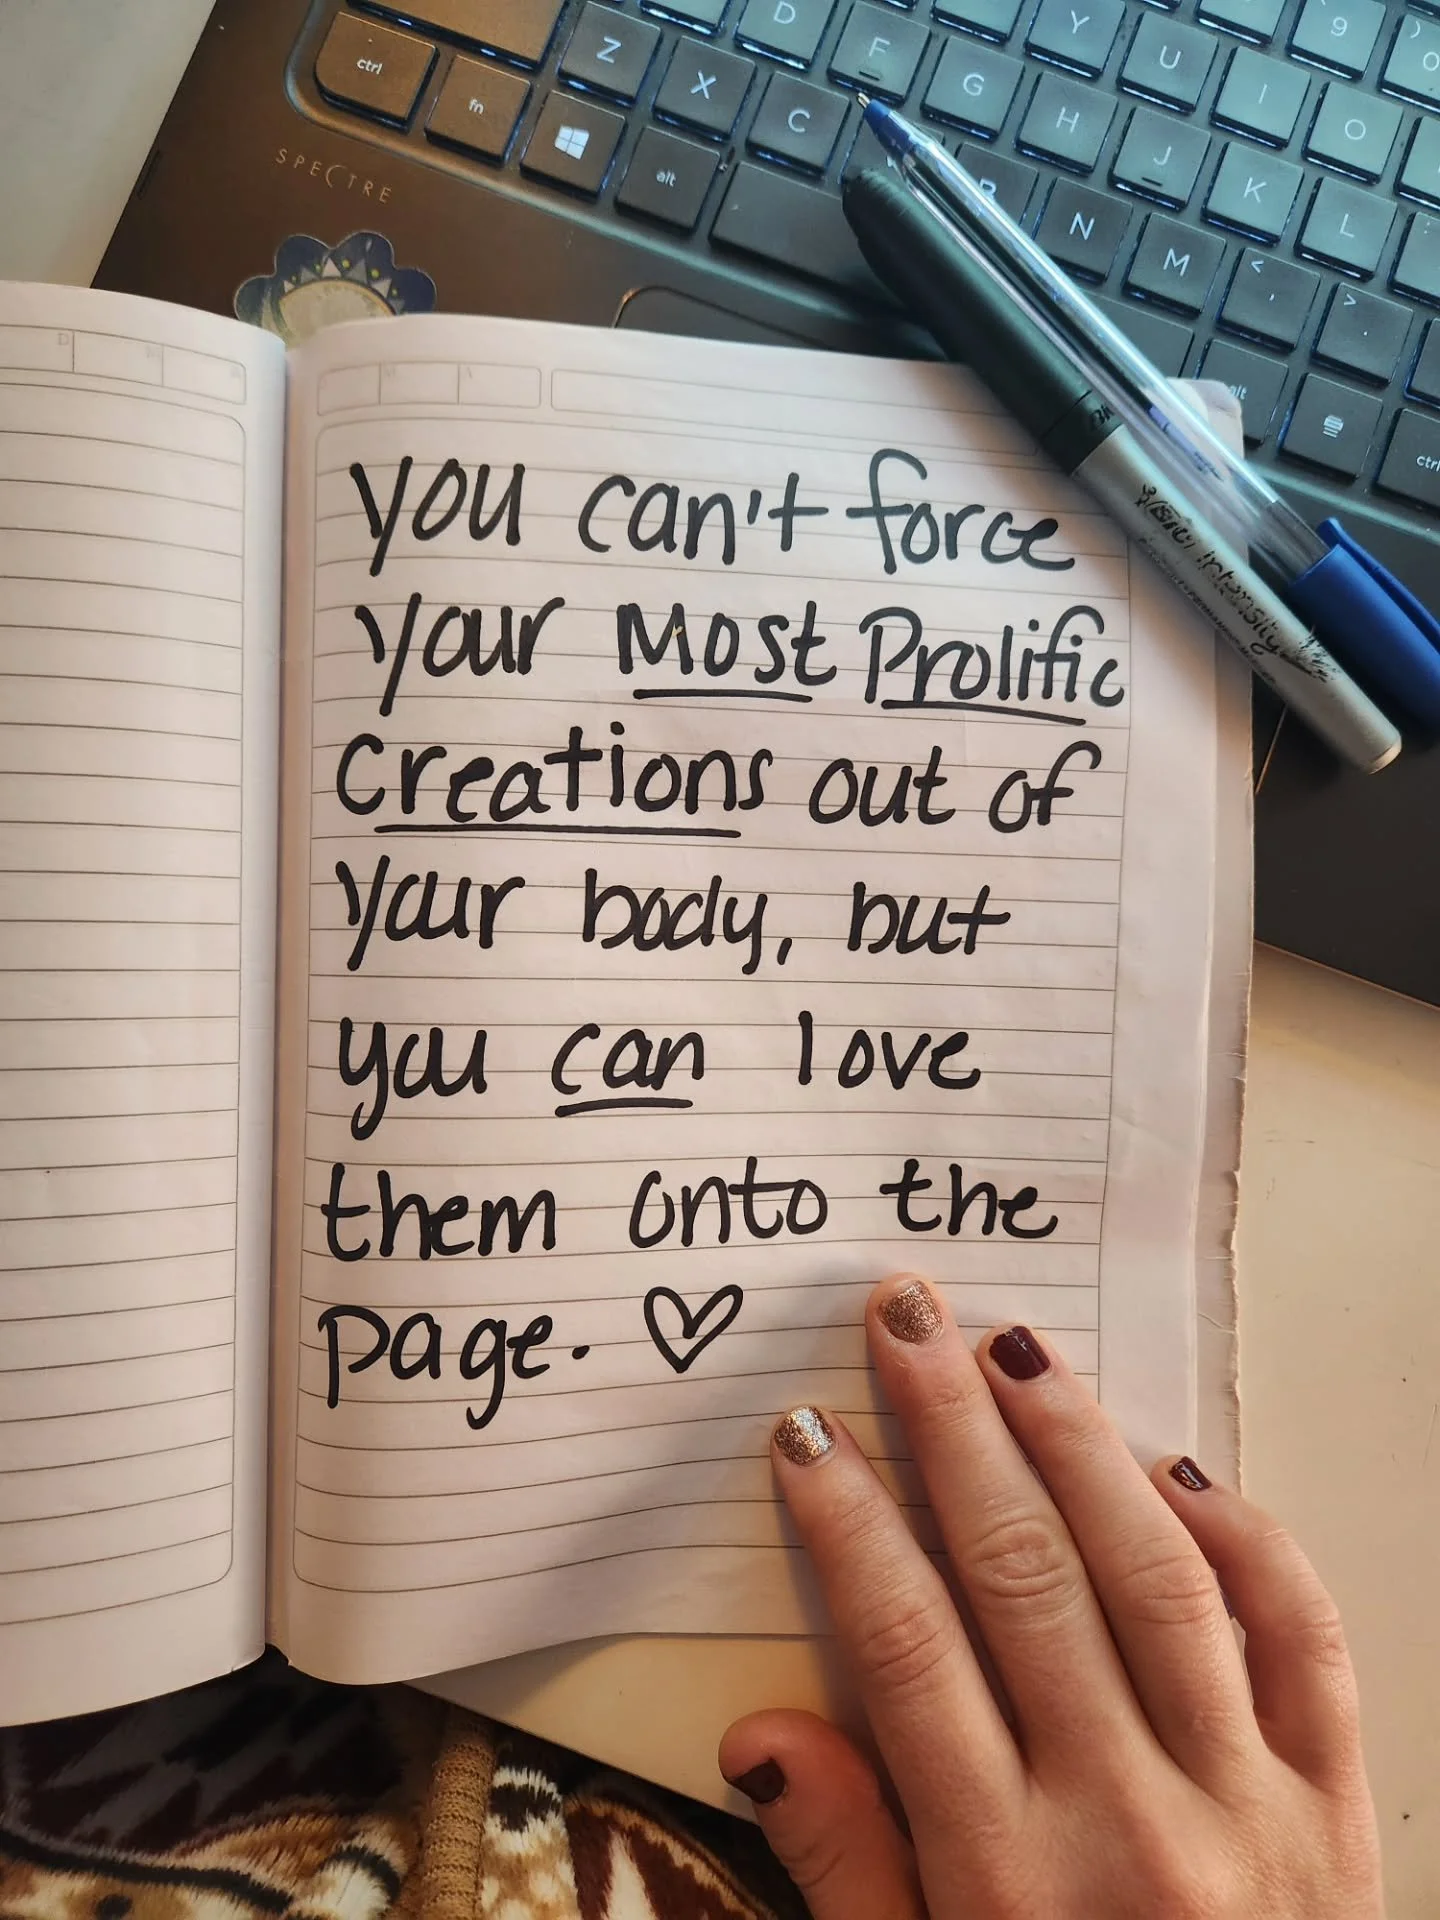 D
Y
9
)
0
Z
F
U
ctrl
X
G
I
fn
C
H
O
J
alt
B
K
N
L
SPECTRE
M
<
,
>
.
alt
ctrl
you can't force
your Most Prolific
Creations out of
your body, but
you can love
them onto the
page. ♡
BIC
Intensity